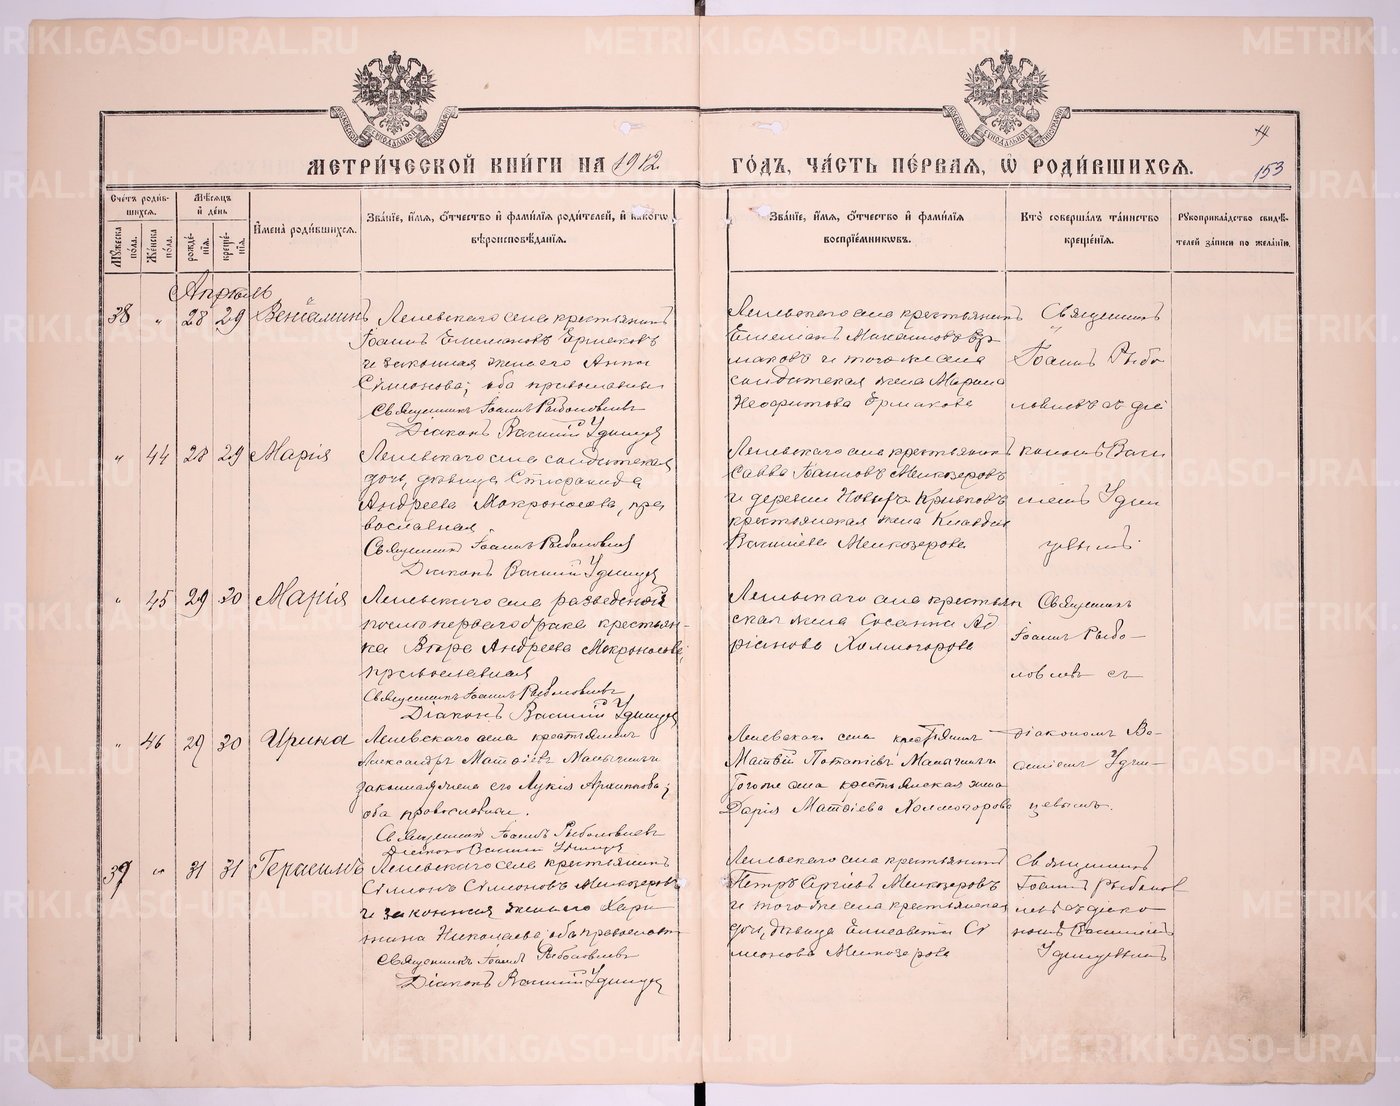 МЕТРИ́ЧЕСКОЙ КНИ́ГИ НА 1912 ГО́ДЪ, ЧА́СТЬ ПЕ́РВАЯ, Ѡ РОДИ́ВШИХСЯ.
4
153
Сче́тъ роди́в-
шихся.
Му́жеска по́ла.
Же́нска по́ла.
Мѣ́сяцъ
и де́нь
рожде́-
нія.
креще́-
нія.
Имена̀ роди́вшихся.
Зва́ніе, и́мя, о́тчество и фами́лія роди́телей, и како́гѡ
вѣроисповѣ́данія.
Зва́ніе, и́мя, о́тчество и фами́лія
воспріе́мниковъ.
Кто̀ соверша́лъ та́инство
креще́нія.
Рукоприкла́дство свидѣ́-
телей за́писи по жела́нію.
Апрѣль
38 " 28 29 Веніаминъ
села крестьянинъ
Іоаннъ Емеліановъ Ермаковъ
и законная жена его Анна
Сімонова; оба православны
Священникъ Іоаннъ Рыболовлевъ
Діаконъ Василій Удинцев
села крестьянинъ
Емеліанъ Ер-
маковъ и того же села
солдатская жена Марина
Неофитова Ермакова
Священникъ
Іоаннъ Рыбо
ловлевъ съ діа
" 44 28 29 Марія
села солдатская
дочь, дѣвица
Андреева Мокроносова, пра
вославная
Священникъ Іоаннъ Рыболовлевъ
Діаконъ Василій Удинцев
села крестьянинъ
Савва Іоанновъ Мелкозеровъ
и деревни Новыхъ Кривковъ
крестьянская жена Клавдія
Васильева Мелкозерова
кономъ Васи
ліемъ Удин
цевымъ
" 45 29 30 Марія
села
послѣ перваго брака крестьян-
ка Вѣра Андреева Мокроносова;
православная
Священникъ Іоаннъ Рыболовлевъ
Діаконъ Василій Удинцев
села крестьян
ская жена Сосанна Ад
ріанова Холмогорова
Священникъ
Іоаннъ Рыбо-
ловлевъ съ
" 46 29 30 Ирина
села крестьянинъ
Александръ Матѳіевъ
законная жена его Лукія Архиппова;
оба православны.
Священникъ Іоаннъ Рыболовлевъ
Діаконъ Василій Удинцев
села крестьянинъ
Матѳій Потапіевъ
Того же села крестьянская жена
Дарія Матѳіева Холмогорова
діакономъ Ва-
силіемъ Удин-
цевымъ.
39 " 31 31 Герасимъ
села крестьянинъ
Сімеонъ Сімеоновъ Мелкозеровъ
и законная жена его Хари
тина Николаева; оба православн
Священникъ Іоаннъ Рыболовлевъ
Діаконъ Василій Удинцев
села крестьянинъ
Петръ Сергіевъ Мелкозеровъ
и того же села крестьянская
дочь, дѣвица Елисавета Сі
меонова Мелкозерова
Священникъ
Іоаннъ Рыболов
левъ съ діако
номъ Василіемъ
Удинцевымъ
METRIKI.GASO-URAL.RU